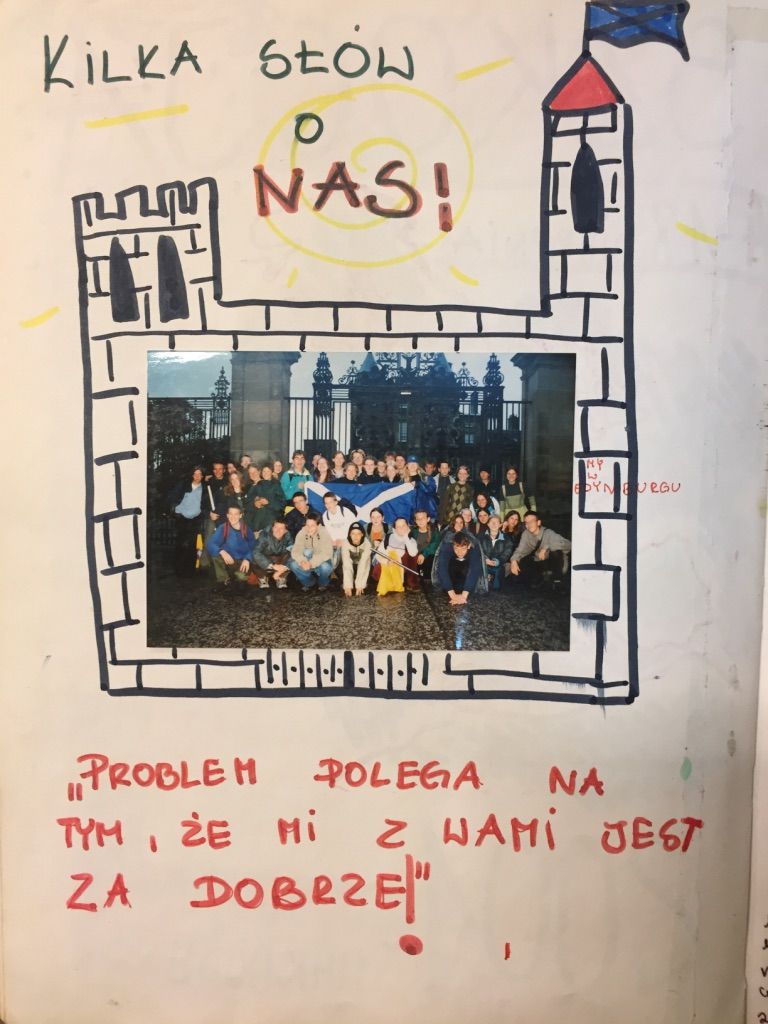 KILKA SŁÓW
O
NAS!
MY
W
EDYNBURGU
„PROBLEM POLEGA NA
TYM, ŻE MI Z WAMI JEST
ZA DOBRZE!"